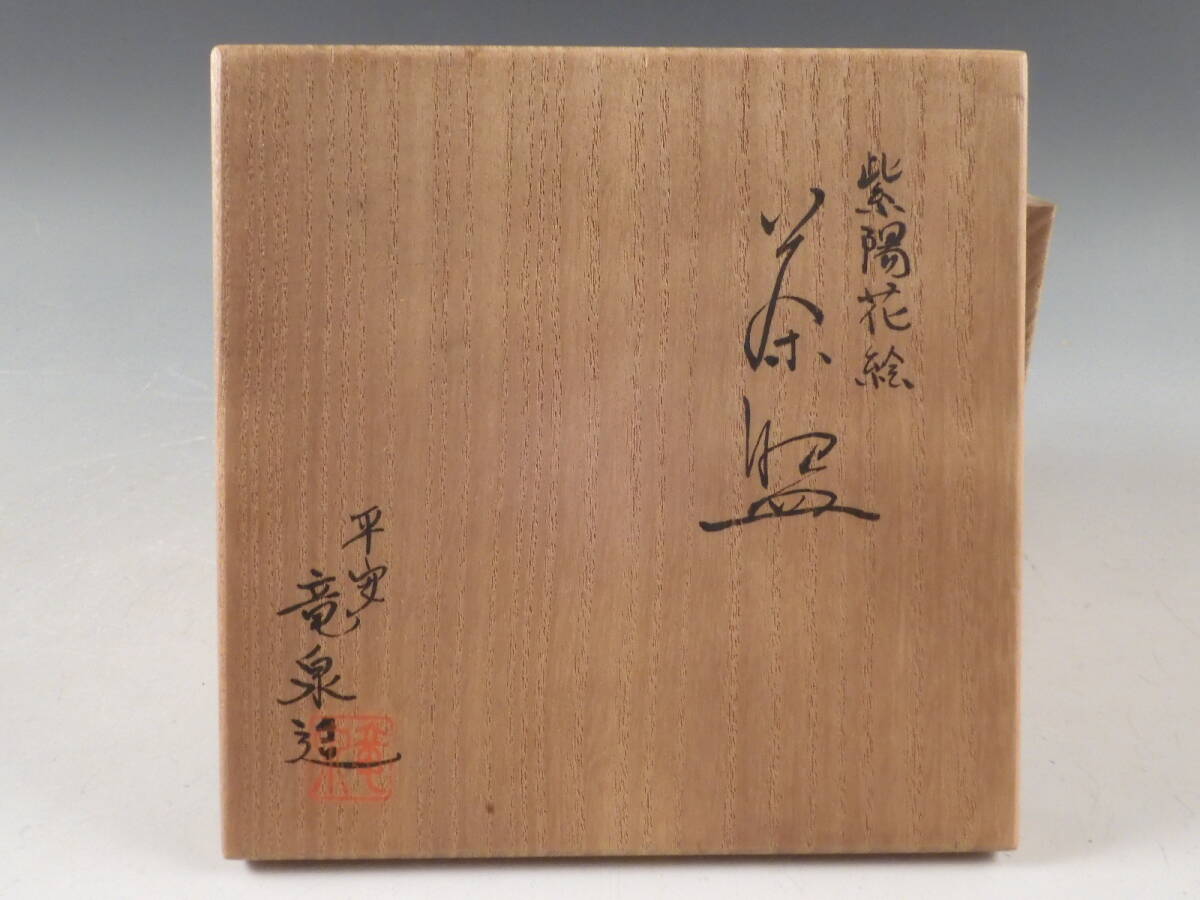 紫陽花絵
茶盌
平安
竜泉造